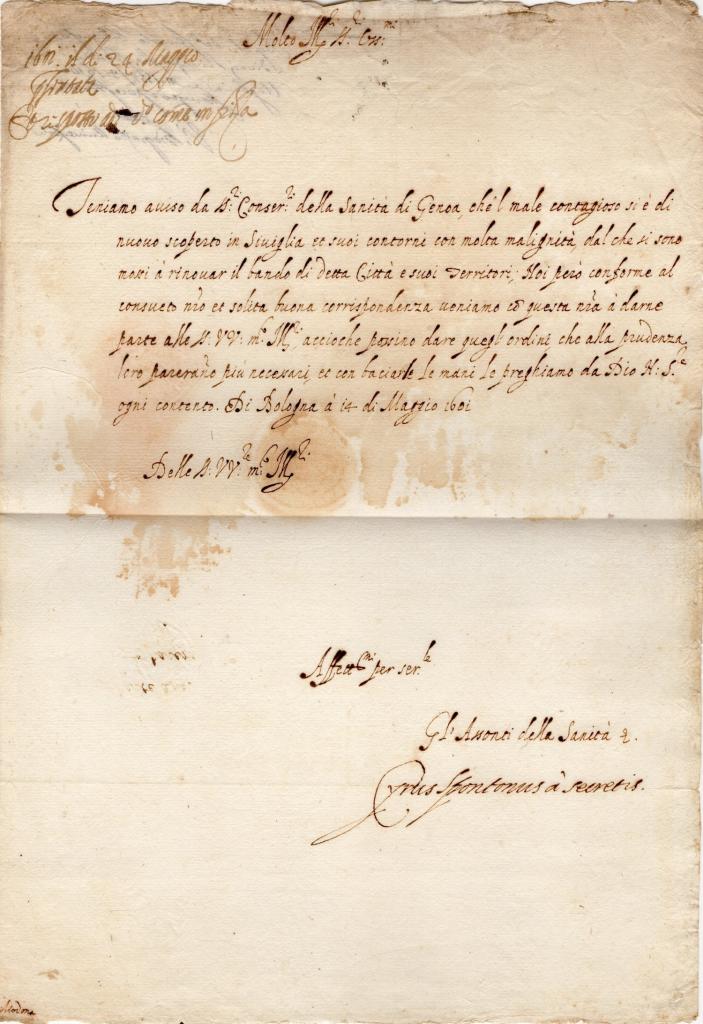 Molto Ill.ri S.ri Oss.mi
1601. il dì 24 Maggio
et risposto come in filza
Teniamo auiso da S.ri Conser.ri della Sanità di Genoa, che'l male contagioso si è di
nuouo scoperto in Siuiglia et suoi contorni con molta malignità, dal che si sono
mossi à rinouar il bando di detta Città e suoi Territori; Noi però conforme al
consueto nro et solita buona corrispondenza ueniamo cō questa nra à darne
parte alle S. VV. m.to Ill.ri accioche possino dare quegl'ordini che alla prudenza
loro parerāno più necessari, et con baciarle le mani le preghiamo da Dio N. S.re
ogni contento. Di Bologna à 14 di Maggio 1601
Delle S. VV.re m.to Ill.ri
Affett.mi per ser.le
Gl'Assonti della Sanità
Cyrus Spontonus à secretis.
Modona